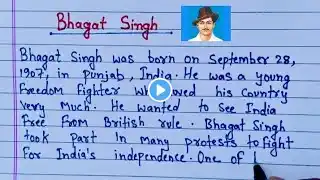 Bhagat Singh
Bhagat Singh was born on September 28,
1907, in Punjab, India. He was a young
Freedom Fighter who loved his Country
very Much. He wanted to see India
Free From British rule. Bhagat Singh
took part in many protests to fight
For India's independence. One of